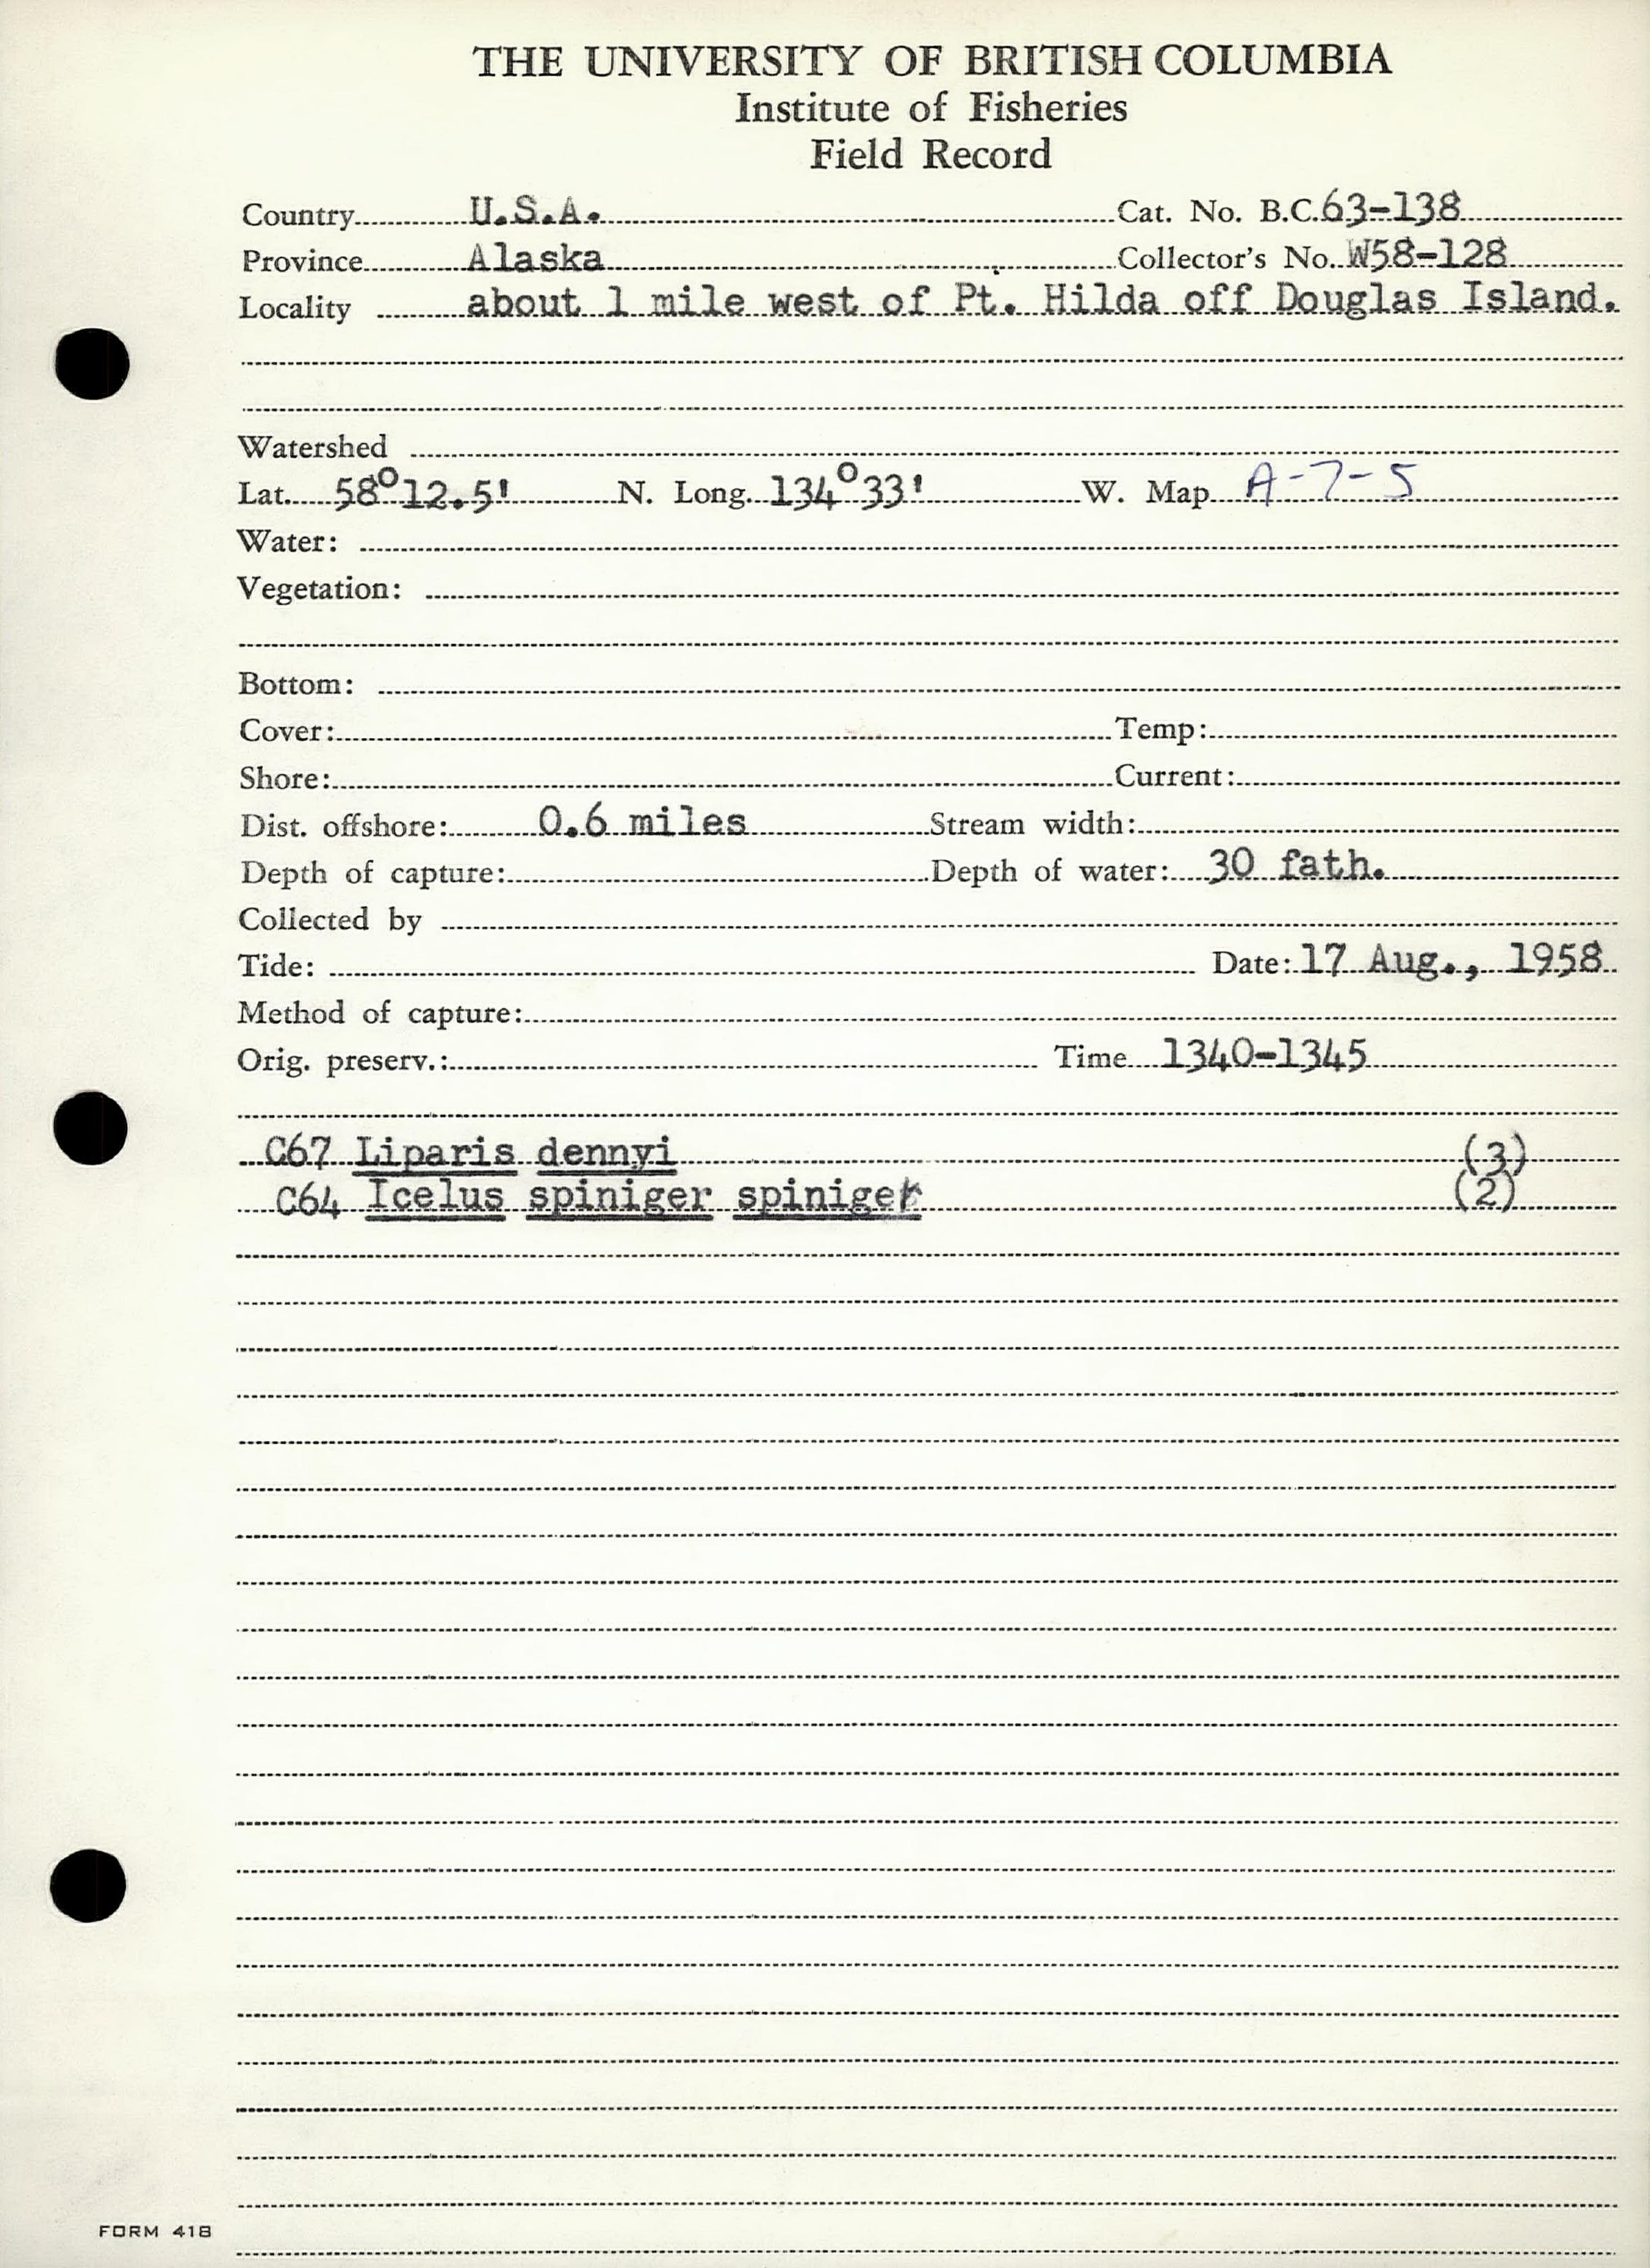 THE UNIVERSITY OF BRITISH COLUMBIA
Institute of Fisheries
Field Record
Country U.S.A. Cat. No. B.C. 63-138
Province Alaska Collector's No. W58-128
Locality about 1 mile west of Pt. Hilda off Douglas Island.
Watershed
Lat. 58°12.5' N. Long. 134°33' W. Map A-7-5
Water:
Vegetation:
Bottom:
Cover: Temp:
Shore: Current:
Dist. offshore: 0.6 miles Stream width:
Depth of capture: Depth of water: 30 fath.
Collected by
Tide: Date: 17 Aug., 1958
Method of capture:
Orig. preserv.: Time 1340-1345
C67 Liparis dennyi (3)
C64 Icelus spiniger spiniger (2)
FORM 418